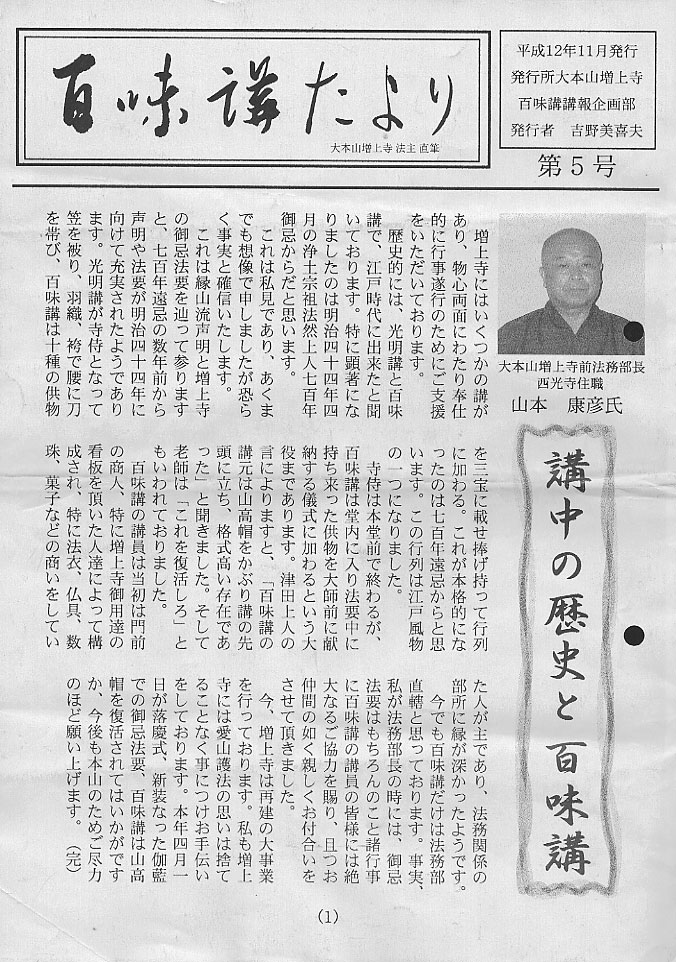 百味講たより
大本山増上寺 法主 直筆
平成12年11月発行
発行所大本山増上寺
百味講講報企画部
発行者 吉野美喜夫
第5号
大本山増上寺前法務部長
西光寺住職
山本 康彦氏
講中の歴史と百味講
増上寺にはいくつかの講が
あり、物心両面にわたり奉仕
的に行事遂行のためにご支援
をいただいております。
歴史的には、光明講と百味
講で、江戸時代に出来たと聞
いております。特に顕著にな
りましたのは明治四十四年四
月の浄土宗祖法然上人七百年
御忌からだと思います。
これは私見であり、あくま
でも想像で申しましたが恐ら
く事実と確信いたします。
これは縁山流声明と増上寺
の御忌法要を辿って参ります
と、七百年遠忌の数年前から
声明や法要が明治四十四年に
向けて充実されたようであり
ます。光明講が寺侍となって
笠を被り、羽織、袴で腰に刀
を帯び、百味講は十種の供物
を三宝に載せ捧げ持って行列
に加わる。これが本格的にな
ったのは七百年遠忌からと思
います。この行列は江戸風物
の一つになりました。
寺侍は本堂前で終わるが、
百味講は堂内に入り法要中に
持ち来った供物を大師前に献
納する儀式に加わるという大
役まであります。津田上人の
言によりますと、「百味講の
講元は山高帽をかぶり講の先
頭に立ち、格式高い存在であ
った」と聞きました。そして
老師は「これを復活しろ」と
もいわれておりました。
百味講の講員は当初は門前
の商人、特に増上寺御用達の
看板を頂いた人達によって構
成され、特に法衣、仏具、数
珠、菓子などの商いをしてい
た人が主であり、法務関係の
部所に縁が深かったようです。
今でも百味講だけは法務部
直轄と思っております。事実、
私が法務部長の時には、御忌
法要はもちろんのこと諸行事
に百味講の講員の皆様には絶
大なるご協力を賜り、且つお
仲間の如く親しくお付合いを
させて頂きました。
今、増上寺は再建の大事業
を行っております。私も増上
寺には愛山護法の思いは捨て
ることなく事につけお手伝い
をしております。本年四月一
日が落慶式、新装なった伽藍
での御忌法要、百味講は山高
帽を復活されてはいかがです
か、今後も本山のためご尽力
のほど願い上げます。 (完)
(1)